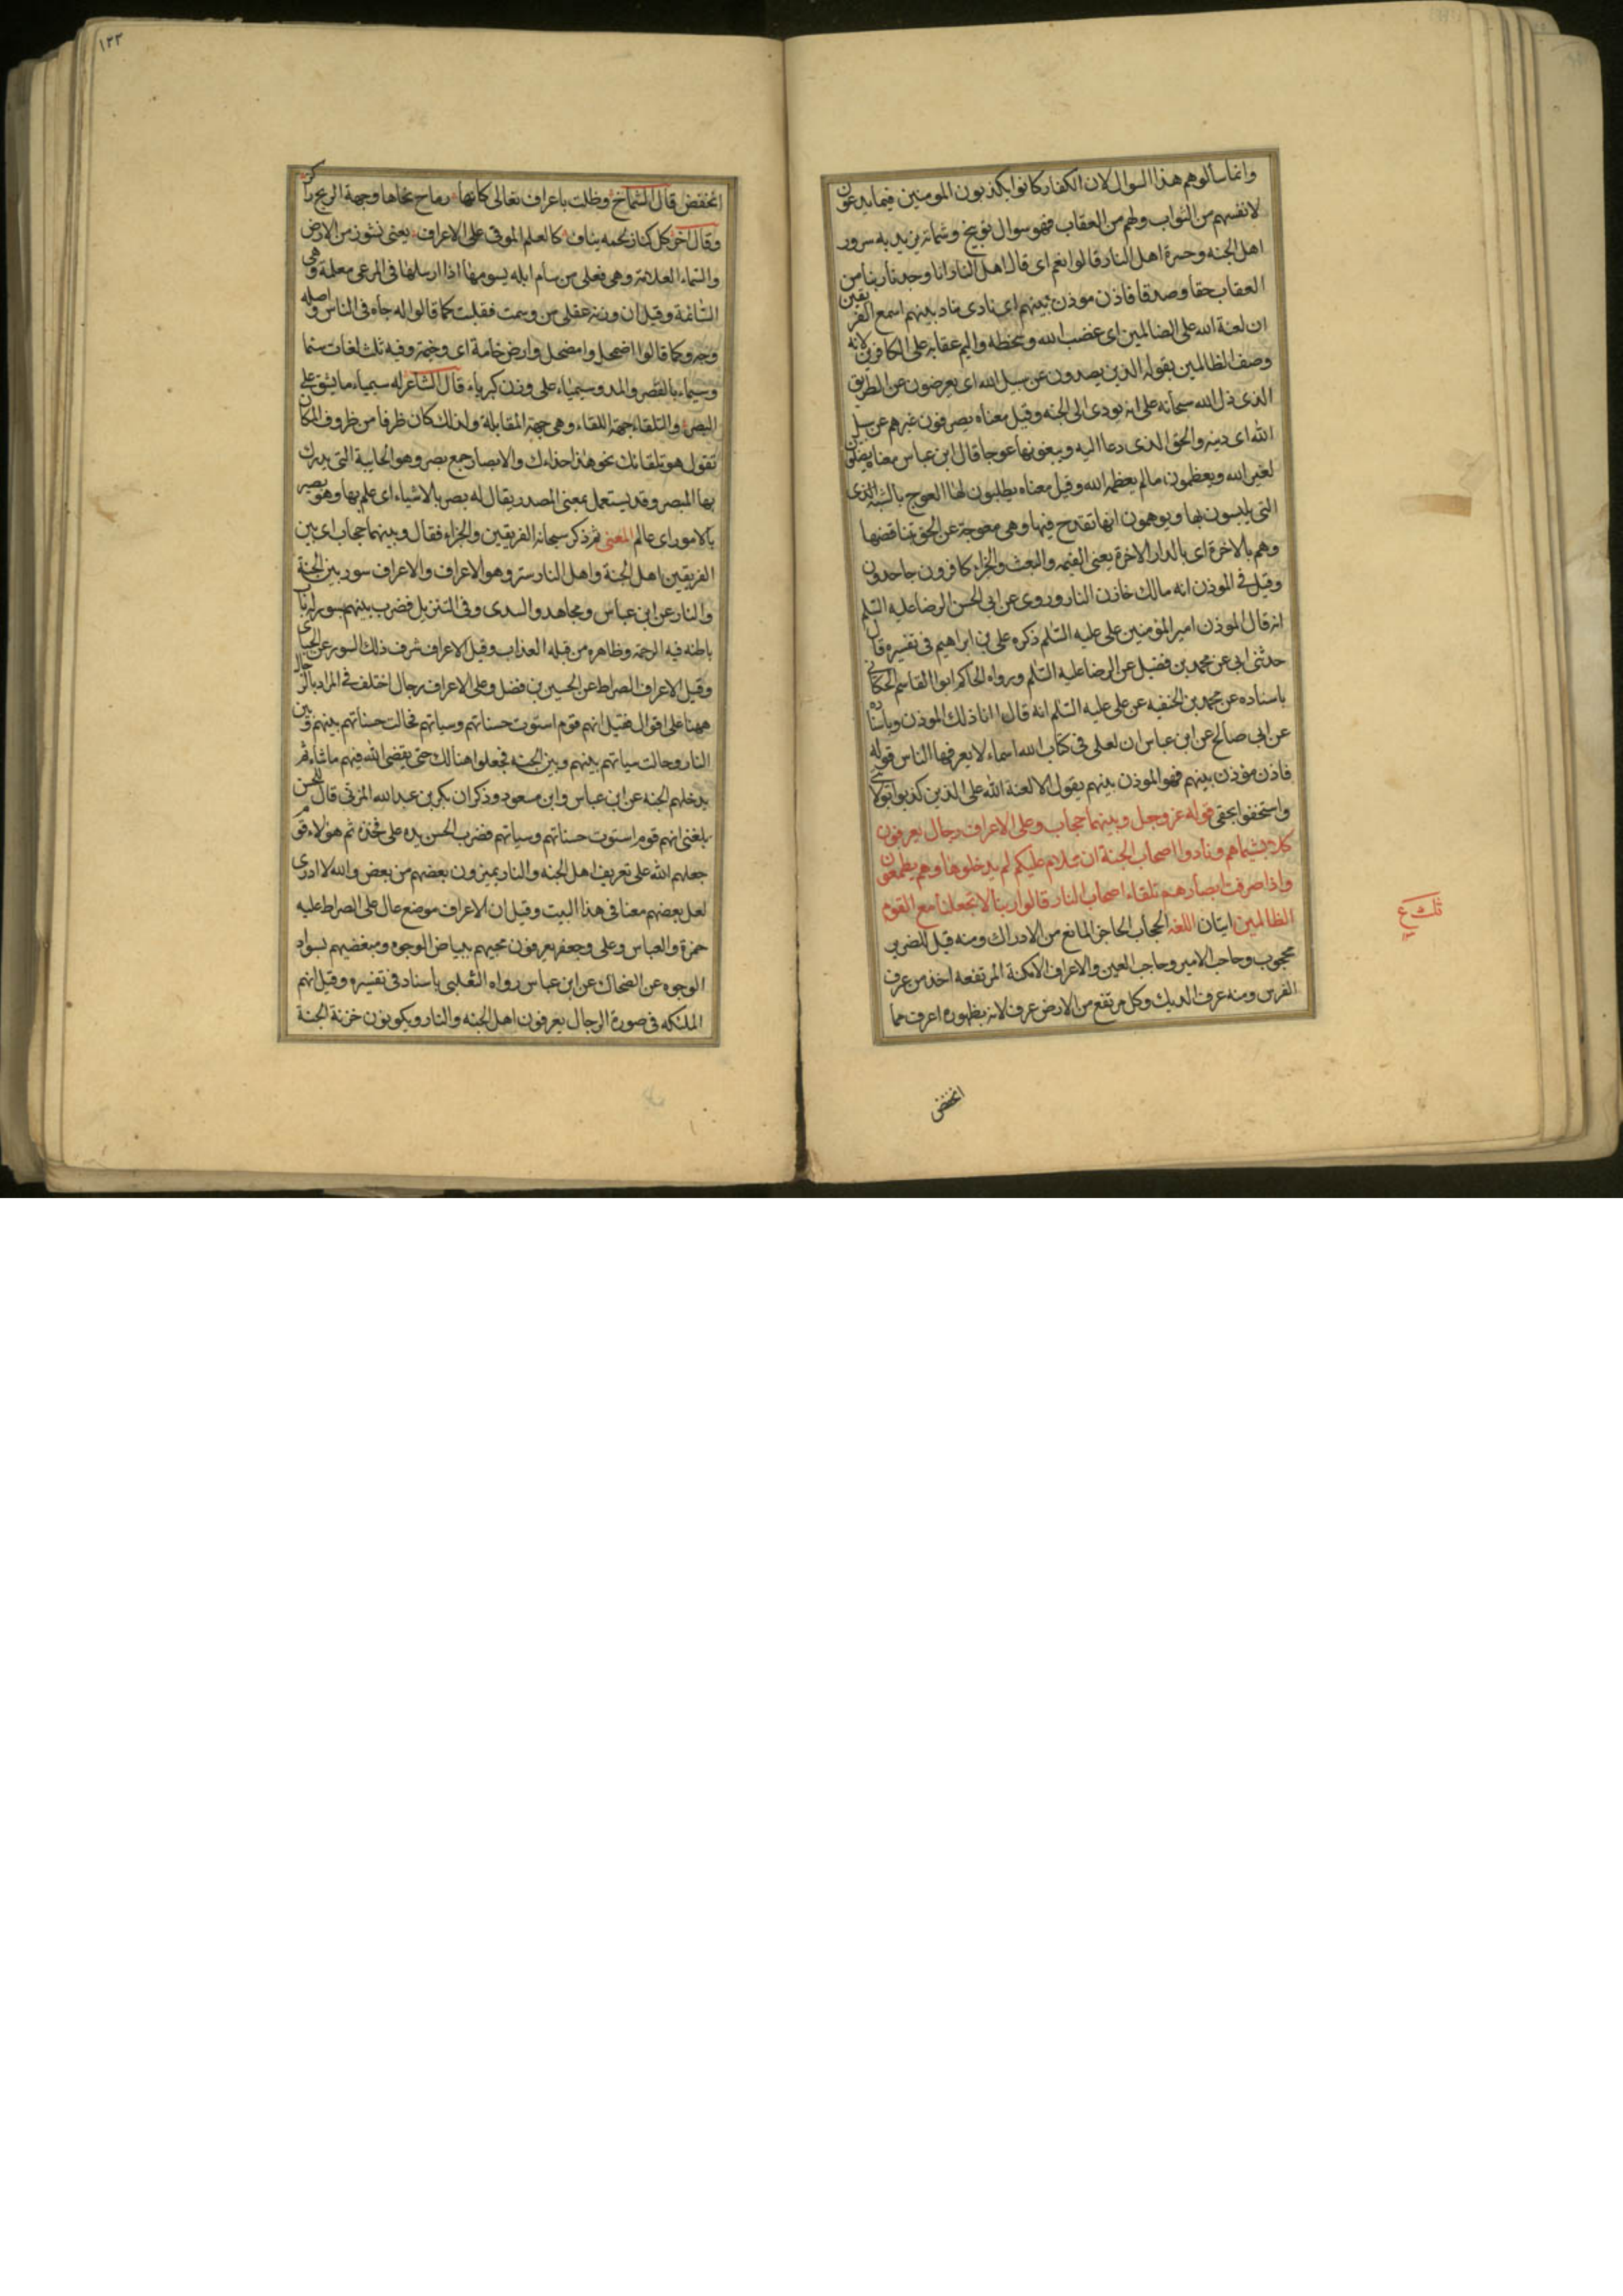 وانما سألوهم هذا السوال لان الكفار كانوا يكذبون المومنين فيما يدعون
لانفسهم من الثواب ولهم من العقاب فهو سوال توبيخ وشماتة يزيد به سرور
اهل الجنه وحسرة اهل النار قالوا نعم اى قال اهل النار انا وجدنا ربنا من
العقاب حقا وصدقا فاذن موذن بينهم اى نادى مناد بينهم اسمع الفريقين
ان لعنة الله على الضالمين اى غضب الله وسخطه واليم عقابه على الكافرين لانه
وصف الظالمين بقوله الذين يصدون عن سبيل الله اى يعرضون عن الطريق
الذى دل الله سبحانه على انه يودى الى الجنه وقيل معناه يصرفون غيرهم عن سبيل
الله اى دينه والحق الذى دعا اليه ويبغونها عوجا قال ابن عباس معناه يصلون
لغير الله ويعظمون مالم يعظمه الله وقيل معناه يطلبون لها العوج بالشبه الذى
التى يلبسون بها ويوهمون انها تقدح فيها وهى معوجة عن الحق بتناقضها
وهم بالاخرة اى بالدار الاخرة يعنى القيمه والبعث والجزاء كافرون جاحدون
وقيل فى الموذن انه مالك خازن النار وروى عن ابى الحسن الرضا عليه السلم
انه قال الموذن امير المؤمنين على عليه السلم ذكره على بن ابراهيم فى تفسيره قال
حدثنى ابى عن محمد بن فضيل عن الرضا عليه السلم ورواه الحاكم ابوا القاسم الحسكانى
باسناده عن محمد بن الحنفيه عن على عليه السلم انه قال انا ذلك الموذن وباسناده
عن ابى صالح عن ابن عباس ان لعلى فى كتاب الله اسماء لا يعرفها الناس قوله
فاذن مؤذن بينهم فهو الموذن بينهم يقول الا لعنة الله على الذين كذبوا بولايتى
واستخفوا بحقى قوله عز وجل وبينهما حجاب وعلى الاعراف رجال يعرفون
كلا بسيماهم ونادوا اصحاب الجنة ان سلام عليكم لم يدخلوها وهم يطمعون
واذا صرفت ابصارهم تلقاء اصحاب النار قالوا ربنا لا تجعلنا مع القوم
الظالمين ايتان اللغه الحجاب الحاجز المانع من الادراك ومنه قيل للضرير
محجوب وحاجب الامير وحاجب العين والاعراف الامكنة المرتفعه اخذ من عرف
الفرس ومنه عرف الديك وكل مرتفع من الارض عرف لانه بظهوره اعرف مما
انخفض
١٢٣
انخفض قال الشماخ وظلت باعراف تعالى كانها رماح نحاها وجهة الريح راكز
وقال اخر كل كناز لحمه نياف كالعلم الموفى على الاعراف يعنى نشوز من الارض
والسماء العلامة وهى فعلى من سام ابله يسومها اذا ارسلها فى المرعى معلمة وهى
السائمة وقيل ان وزنه عفلى من وسمت فقلبت كما قالوا له جاه فى الناس واصله
وجه وكما قالوا اضمحل وامضحل وارض خامة اى وخمة وفيه ثلث لغات سيما
وسيماء بالقصر والمد وسيمياء على وزن كبرياء قال الشاعر له سيمياء ما يشق على
البصر والتلقاء جهة اللقاء وهى جهة المقابلة ولذلك كان ظرفا من ظروف المكان
تقول هو تلقائك نحو هذا حذاءك والابصار جمع بصر وهو الحاسة التى يدرك
بها المبصر وقد يستعمل بمعنى المصدر يقال له بصر بالاشياء اى علم بها وهو بصير
بالامور اى عالم المعنى ثم ذكر سبحانه الفريقين والجزاء فقال وبينهما حجاب اى بين
الفريقين اهل الجنة واهل النار ستر وهو الاعراف والاعراف سور بين الجنة
والنار عن ابن عباس ومجاهد والسدى وفى التنزيل فضرب بينهم بسور له باب
باطنه فيه الرحمة وظاهره من قبله العذاب وقيل الاعراف شرف ذلك السور عن الجبائى
وقيل الاعراف الصراط عن الحسين بن فضل وعلى الاعراف رجال اختلف فى المراد بالرجال
ههنا على اقوال فقيل انهم قوم استوت حسناتهم وسياتهم فحالت حسناتهم بينهم وبين
النار وحالت سياتهم بينهم وبين الجنه فجعلوا هنالك حتى يقضى الله فيهم ما شاء ثم
يدخلهم الجنه عن ابن عباس وابن مسعود وذكر ان بكر بن عبد الله المزنى قال للحسن
بلغنى انهم قوم استوت حسناتهم وسياتهم فضرب الحسن يده على فخذه ثم هؤلاء قوم
جعلهم الله على تعريف اهل الجنه والنار يميزون بعضهم من بعض والله لا ادرى
لعل بعضهم معنا فى هذا البيت وقيل ان الاعراف موضع عال على الصراط عليه
حمزة والعباس وعلى وجعفر يعرفون محبيهم ببياض الوجوه ومبغضيهم بسواد
الوجوه عن الضحاك عن ابن عباس رواه الثعلبى باسناد فى تفسيره وقيل انهم
الملئكه فى صورة الرجال يعرفون اهل الجنه والنار ويكونون خزنة الجنة